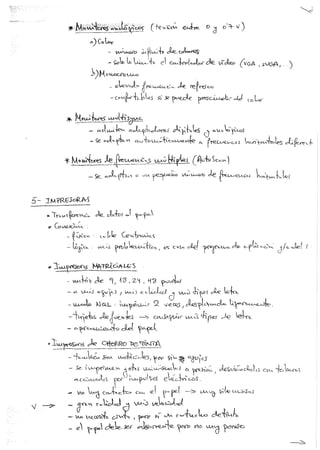 * Monitores analógicos (tensión entre 0 y 0'7 v)
a) Color
- número infinito de colores
- solo lo limita el controlador de vídeo (VGA, SVGA, ...)
b) Monocromo
- elevada frecuencia de refresco
- confortables si se puede prescindir del color
* Monitores multisync
- admiten adaptadores digitales y analógicos
- se adaptan automáticamente a frecuencias horizontales diferent
* Monitores de frecuencias múltiples (AutoScan)
- se adaptan a un pequeño número de frecuencias horizontales
5- IMPRESORAS
• Transferencia de datos al papel
• Conexión:
- física: cable Centronics
- lógica: más problemática, es cosa del programa de aplicación y/o del
• Impresoras MATRICIALES
- matriz de 9, 18, 24, 48 puntos
- a más agujas, más calidad y más tipos de letra
- modo NLQ: imprimir 2 veces, desplazando ligeramente.
- tarjetas de fuentes → conseguir más tipos de letra
- aprovechamiento del papel
• Impresoras de CHORRO DE TINTA
- también son matriciales, por sin agujas
- se imprimen gotas minúsculas a presión,
accionados por impulsos eléctricos.
- no hay contacto con el papel → muy silenciosas
V → - gran calidad y más velocidad
- no necesita cinta, pero sí un cartucho de tinta
- el papel debe ser absorbente pero no muy poroso
→